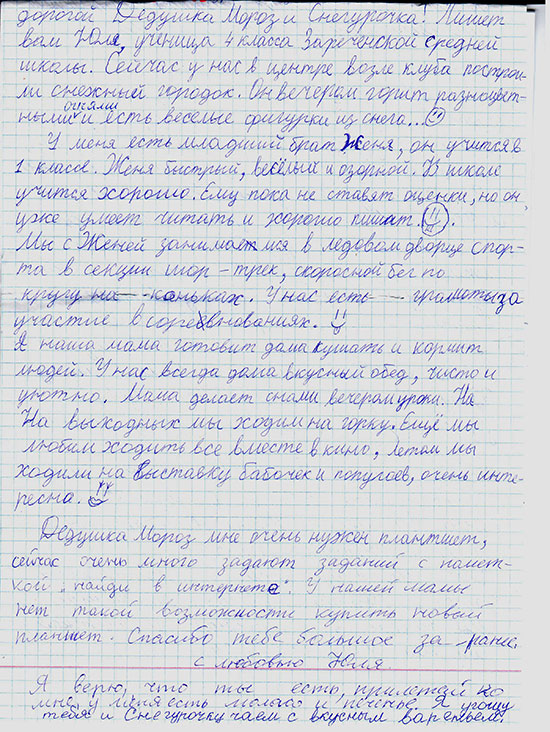 дорогой Дедушка Мороз и Снегурочка! Пишет
вам Юля, ученица 4 класса Зареченской средней
школы. Сейчас у нас в центре возле клуба построи-
ли снежный городок. Он вечером горит разноцвет-
ными огнями и есть весёлые фигурки из снега...
У меня есть младший брат Женя, он учится в
1 классе. Женя быстрый, весёлый и озорной. В школе
учится хорошо. Ему пока не ставят оценки, но он
уже умеет читать и хорошо пишет.
Мы с Женей занимаемся в ледовом дворце спор-
та в секции шорт-трек, скоросной бег по
кругу на коньках. У нас есть грамоты за
участие в соревнованиях.
А наша мама готовит дома кушать и кормит
людей. У нас всегда дома вкусный обед, чисто и
уютно. Мама делает с нами вечером уроки. На
На выходных мы ходим на горку. Ещё мы
любим ходить все вместе в кино, летом мы
ходили на выставку бабочек и попугаев, очень инте-
ресна.
Дедушка Мороз мне очень нужен планшет,
сейчас очень много задают заданий с помет-
кой "найди в интернете". У нашей мамы
нет такой возможности купить новый
планшет. Спасибо тебе большое за-ранее,
с любовью Юля
Я верю, что ты есть, прилетай ко
мне, у меня есть молоко и печенье. Я угощу
тебя и Снегурочку чаем с вкусным вареньем.